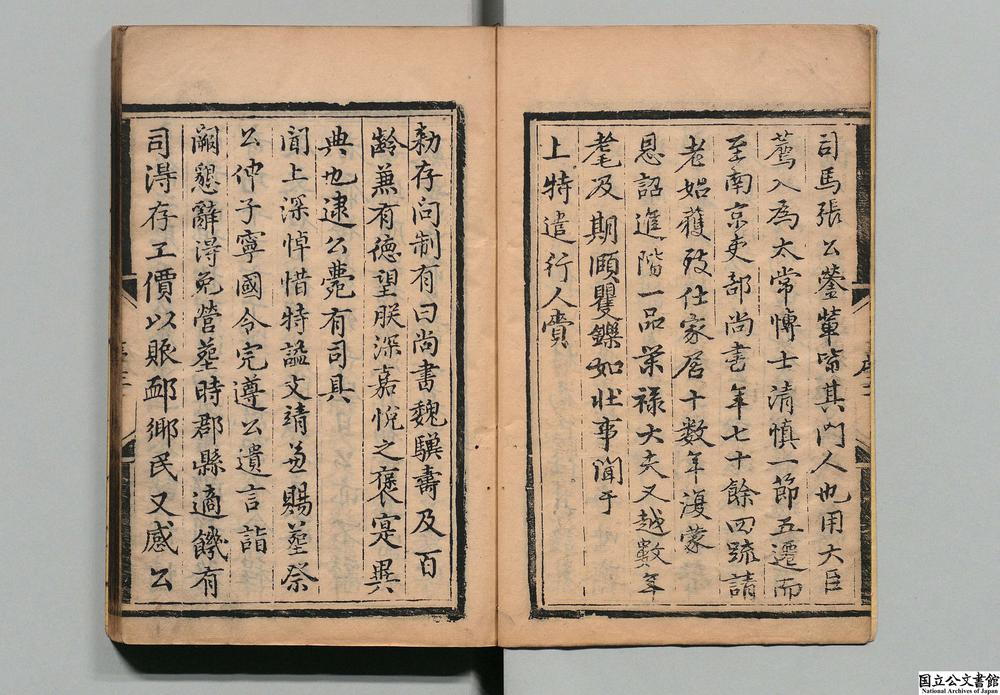 司馬張公鎣軰嘗其門人也用大臣
薦入為太常博士清慎一節五遷而
至南京吏部尚書年七十餘四䟽請
老始獲致仕家居十數年復蒙
恩詔進階一品荣禄大夫又越數年
耄及期頤矍鑠如壮事聞于
上特遣行人賫
勑存问制有曰尚書魏驥壽及百
齡兼有徳望朕深嘉悅之褒寔異
典也逮公薨有司具
聞上深悼惜特謚文靖并賜塟祭
公仲子寧國令完遵公遺言詣
闕懇辭淂免營塟時郡縣適饑有
司淂存工價以賑䘏鄉民又感公
国立公文書館
National Archives of Japan